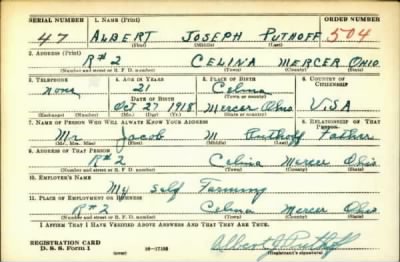 SERIAL NUMBER 1. NAME (Print) ORDER NUMBER
47 ALBERT JOSEPH PUTHOFF 504
(First) (Middle) (Last)
2. ADDRESS (Print)
R#2 CELINA MERCER OHIO
(Number and street or R. F. D. number) (Town) (County) (State)
3. TELEPHONE 4. AGE IN YEARS 5. PLACE OF BIRTH 6. COUNTRY OF CITIZENSHIP
None 21 Celina
DATE OF BIRTH (Town or county)
Oct 27 1918 Mercer Ohio USA
(Exchange) (No.) (Mo.) (Day) (Yr.) (State or country)
7. NAME OF PERSON WHO WILL ALWAYS KNOW YOUR ADDRESS 8. RELATIONSHIP OF THAT PERSON
Mr Jacob M Puthoff Father
(Mr., Mrs., Miss) (First) (Middle) (Last)
9. ADDRESS OF THAT PERSON
R#2 Celina Mercer Ohio
(Number and street or R. F. D. number) (Town) (County) (State)
10. EMPLOYER'S NAME
My Self Farming
11. PLACE OF EMPLOYMENT OR BUSINESS
R#2 Celina Mercer Ohio
(Number and street or R. F. D. number) (Town) (County) (State)
I AFFIRM THAT I HAVE VERIFIED ABOVE ANSWERS AND THAT THEY ARE TRUE.
REGISTRATION CARD
D. S. S. Form 1 Albert J Puthoff
(Registrant's signature)